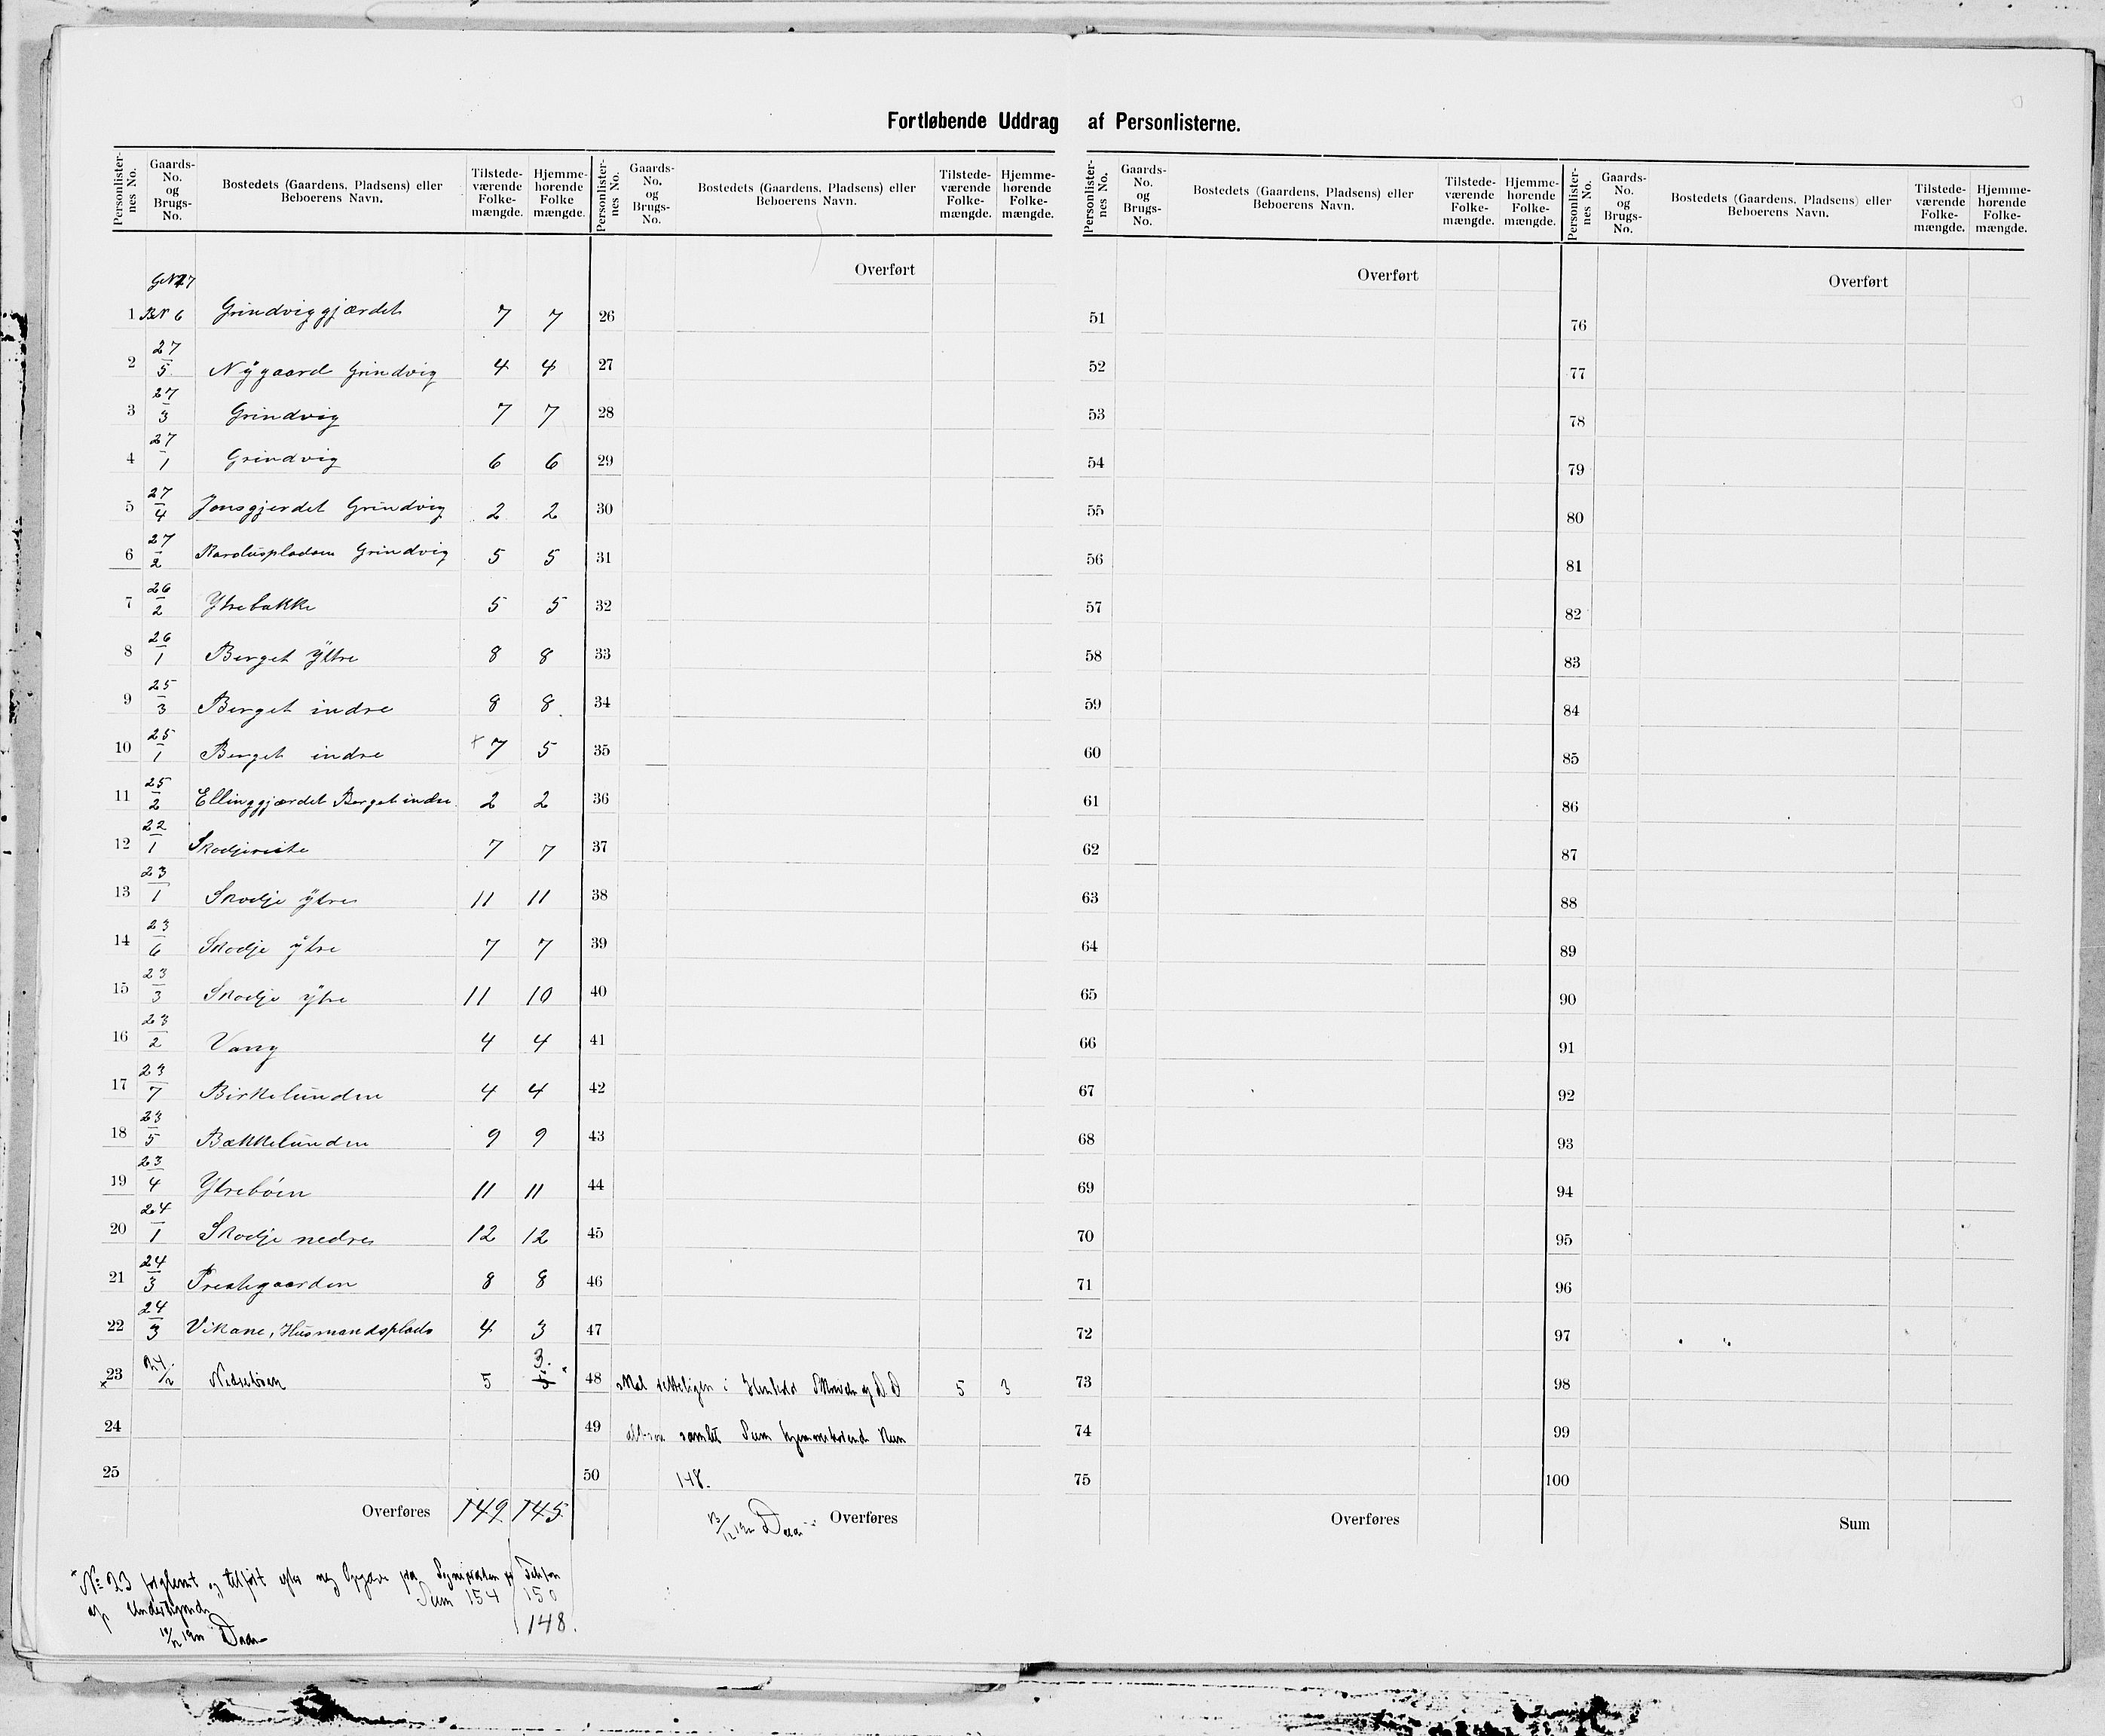 Fortløbende Uddrag af Personlisterne.
Personlister-nes No. Gaards-No. og Brugs-No. Bostedets (Gaardens, Pladsens) eller Beboerens Navn. Tilstede-værende Folke-mængde. Hjemme-hørende Folke mængde.
Personlister-nes No. Gaards-No. og Brugs-No. Bostedets (Gaardens, Pladsens) eller Beboerens Navn. Tilstede-værende Folke-mængde. Hjemme-hørende Folke-mængde.
Personlister-nes No. Gaards-No. og Brugs-No. Bostedets (Gaardens, Pladsens) eller Beboerens Navn. Tilstede-værende Folke-mængde. Hjemme-hørende Folke-mængde.
Personlister-nes No. Gaards-No. og Brugs-No. Bostedets (Gaardens, Pladsens) eller Beboerens Navn. Tilstede-værende Folke-mængde. Hjemme-hørende Folke-mængde.
GN 27
1 BN 6 Grindviggjærdet 7 7
2 27/5 Nÿgaard Grindvig 4 4
3 27/3 Grindvig 7 7
4 27/1 Grindvig 6 6
5 27/4 Jonsgjerdet Grindvig 2 2
6 27/2 Karoluspladsen Grindvig 5 5
7 26/2 Ytrebakke 5 5
8 26/1 Berget Ÿttre 8 8
9 25/3 Berget indre 8 8
10 25/1 Berget indre × 7 5
11 25/2 Ellinggjærdet Berget indre 2 2
12 22/1 Skodjereite 7 7
13 23/1 Skodje ÿtre 11 11
14 23/6 Skodje ÿtre 7 7
15 23/3 Skodje ÿtre 11 10
16 23/2 Vang 4 4
17 23/7 Birkelunden 4 4
18 23/5 Bækkelunden 9 9
19 23/4 Ytrebøen 11 11
20 24/1 Skodje nedre 12 12
21 24/3 Prestegaarden 8 8
22 24/3 Vikane, Husmandsplads 4 3
× 23 24/2 Nedrebøen 5 3.
24
25
Overføres 149 145
* No 23 forglemt og tilført efter Opgave fra Telefon
Sum 154 150
af Undertegnede
148.
Overført
26
27
28
29
30
31
32
33
34
35
36
37
38
39
40
41
42
43
44
45
46
47
48 Skal i Henhold 5 3
49 altsaa samlet Sum hjemmehørende kun
50 148.
Overføres
Overført
51
52
53
54
55
56
57
58
59
60
61
62
63
64
65
66
67
68
69
70
71
72
73
74
75
Overføres
Overført
76
77
78
79
80
81
82
83
84
85
86
87
88
89
90
91
92
93
94
95
96
97
98
99
100
Sum